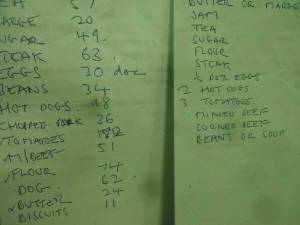 57
LARGE 20
SUGAR 49
STEAK 63
EGGS 30 doz
BEANS 34
HOT DOGS 48
CHOPPED PORK 36
TOMATOES
M/BEEF 51
FLOUR 74
DOG 62
BUTTER 24
BISCUITS 11
BUTTER OR MARGE
JAM
TEA
SUGAR
FLOUR
STEAK
½ DOZ EGGS
2 HOT DOGS
3 TOMATOES
MINCED BEEF
CORNED BEEF
BEANS OR SOUP